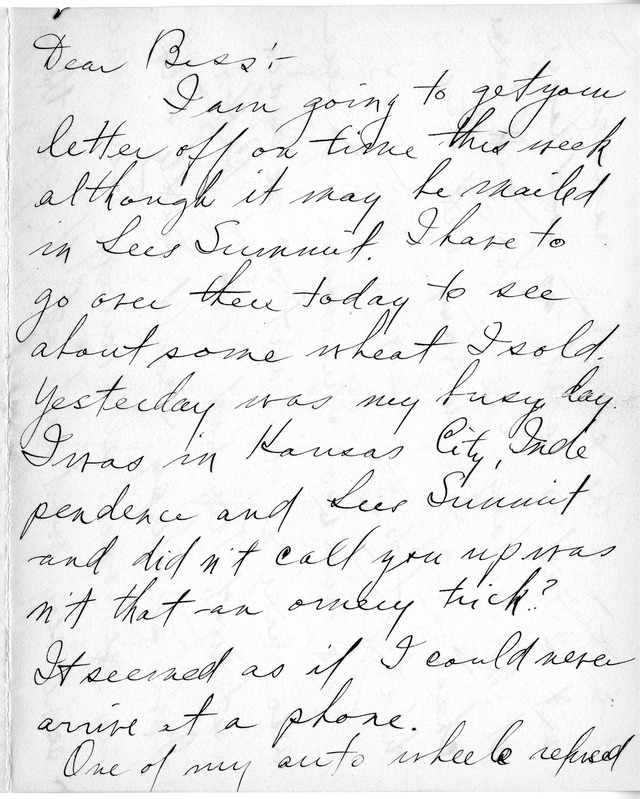 Dear Bess:-
I am going to get your
letter off on time this week
although it may be mailed
in Lees Summit. I have to
go over there today to see
about some wheat I sold.
Yesterday was my busy day.
I was in Kansas City, Inde
pendence and Lees Summit
and did n't call you up was
n't that an ornery trick?
It seemed as if I could never
arrive at a phone.
One of my auto wheels refused